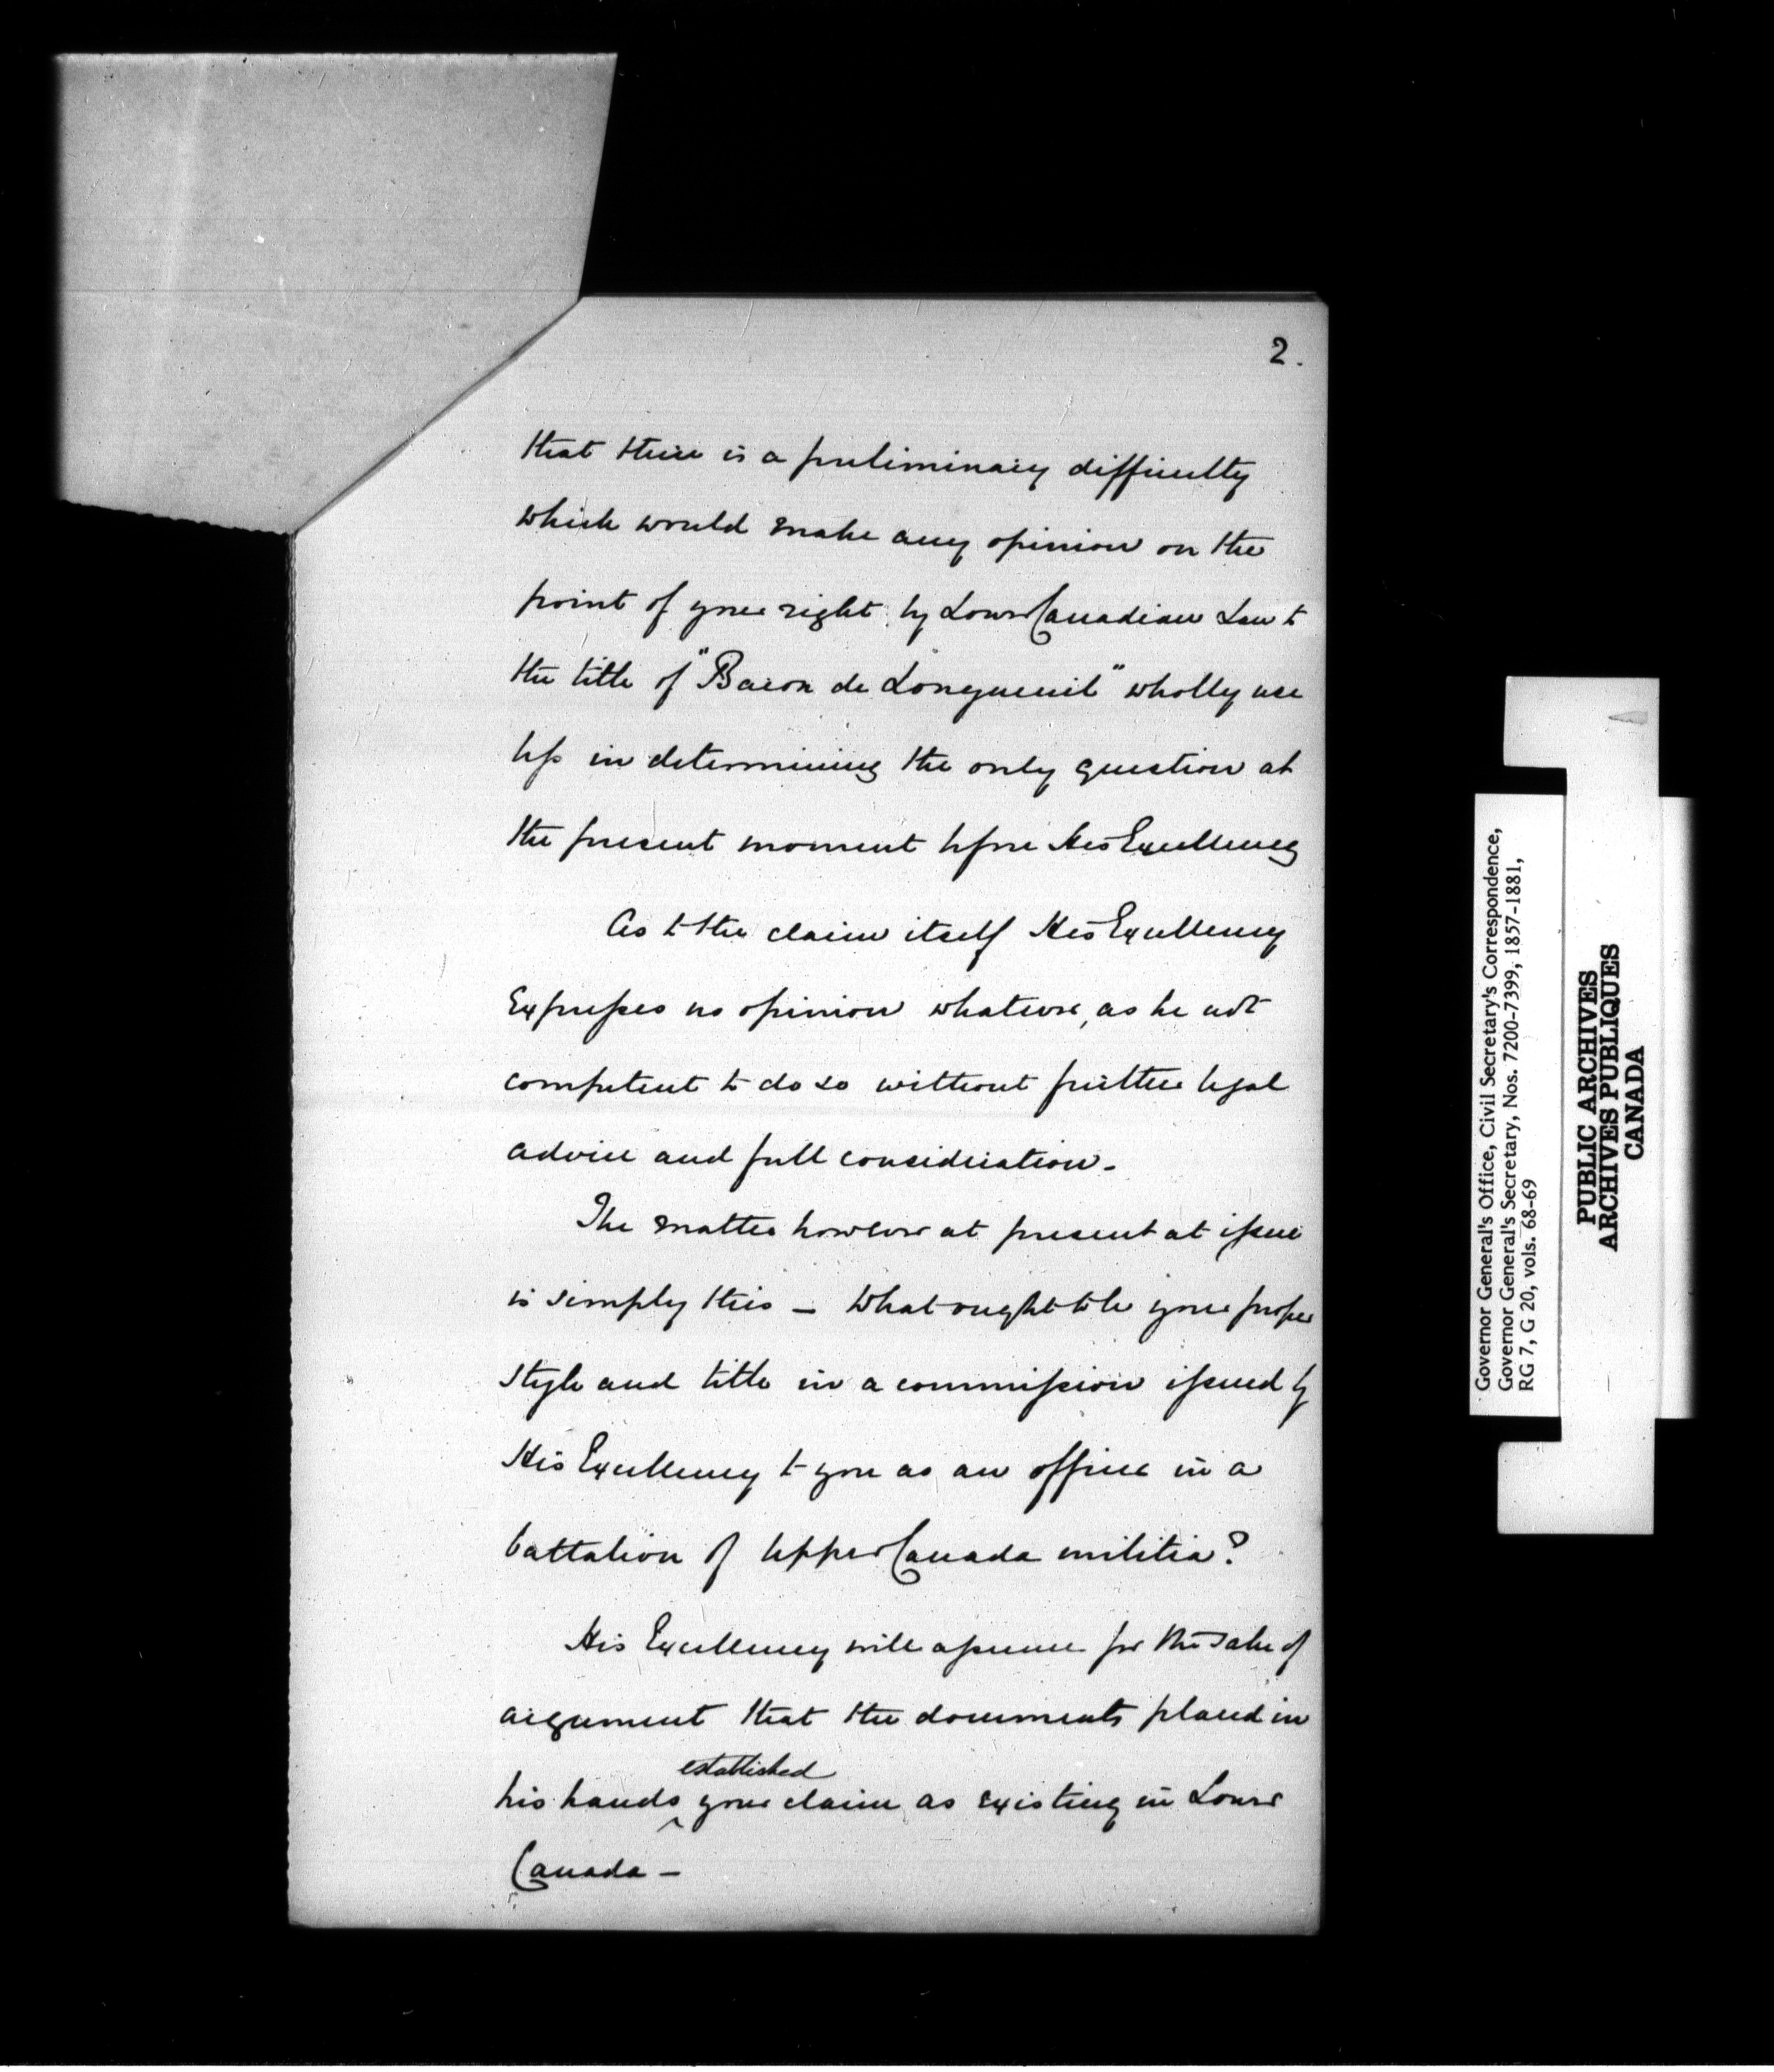 2.
that there is a preliminary difficulty
which would make any opinion on the
point of your right by Lower Canadian Law to
the title of "Baron de Longueuil" wholly use
less in determining the only question at
the present moment before His Excellency
As to the claim itself His Excellency
Expresses no opinion whatever, as he is not
competent to do so without further legal
advice and full consideration.
The matter however at present at issue
is simply this – What ought to be your proper
style and title in a commission issued by
His Excellency to you as an officer in a
battalion of Upper Canada militia?
His Excellency will assume for the sake of
argument that the documents placed in
established
his hands ^ your claim as existing in Lower
Canada –
Governor General's Office, Civil Secretary's Correspondence,
Governor General's Secretary, Nos. 7200-7399, 1857-1881,
RG 7, G 20, vols. 68-69
PUBLIC ARCHIVES
ARCHIVES PUBLIQUES
CANADA